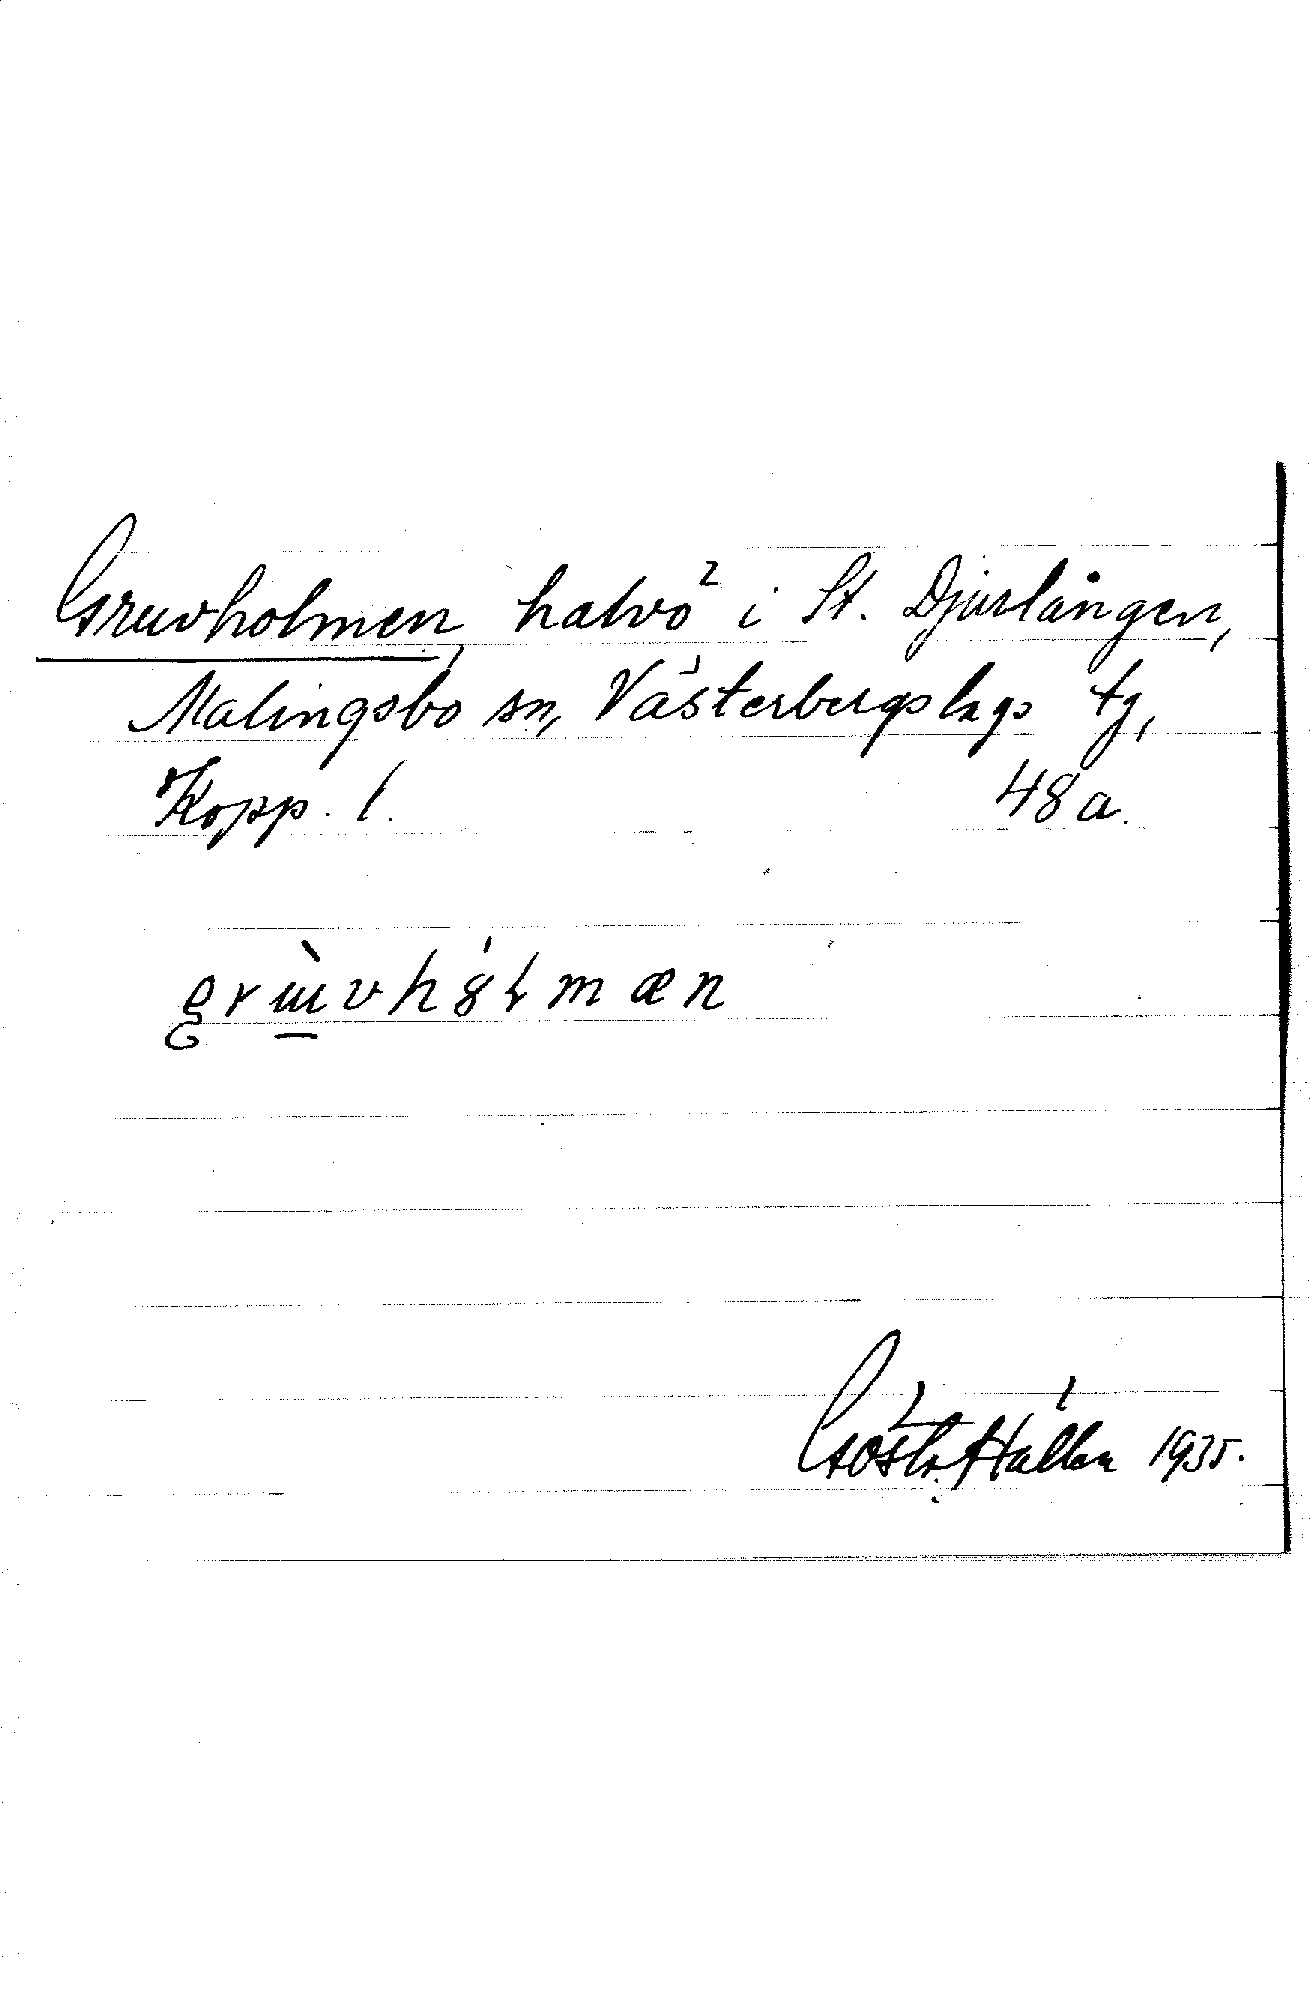 Gruvholmen, halvö i St. Djurlången,
Malingsbo sn, Västerbergslags tg,
Kopp. l. 48 a.
Gösta Hallén 1935.